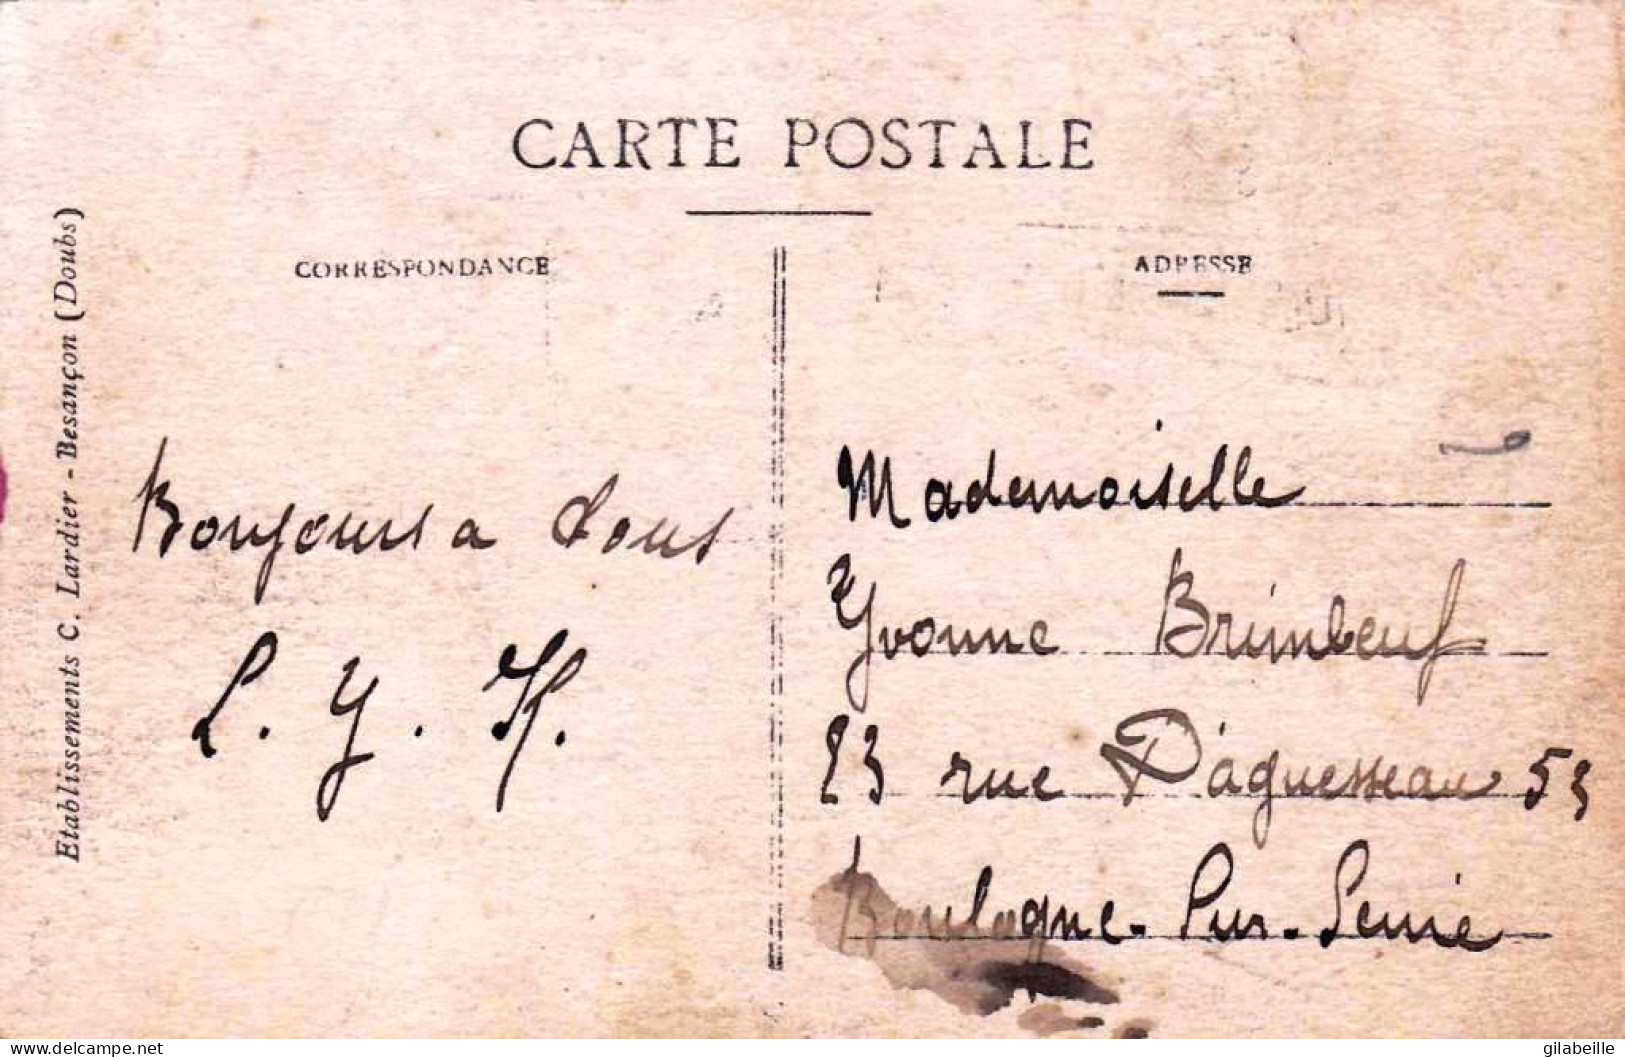 CARTE POSTALE
CORRESPONDANCE
ADRESSE
Etablissements C. Lardier - Besançon (Doubs)
Bonjours a tous
L. Y. H.
Mademoiselle
Yvonne Brimbeuf
23 rue D'aguesseau 53
Boulogne-Sur-Seine
www.delcampe.net
gilabeille